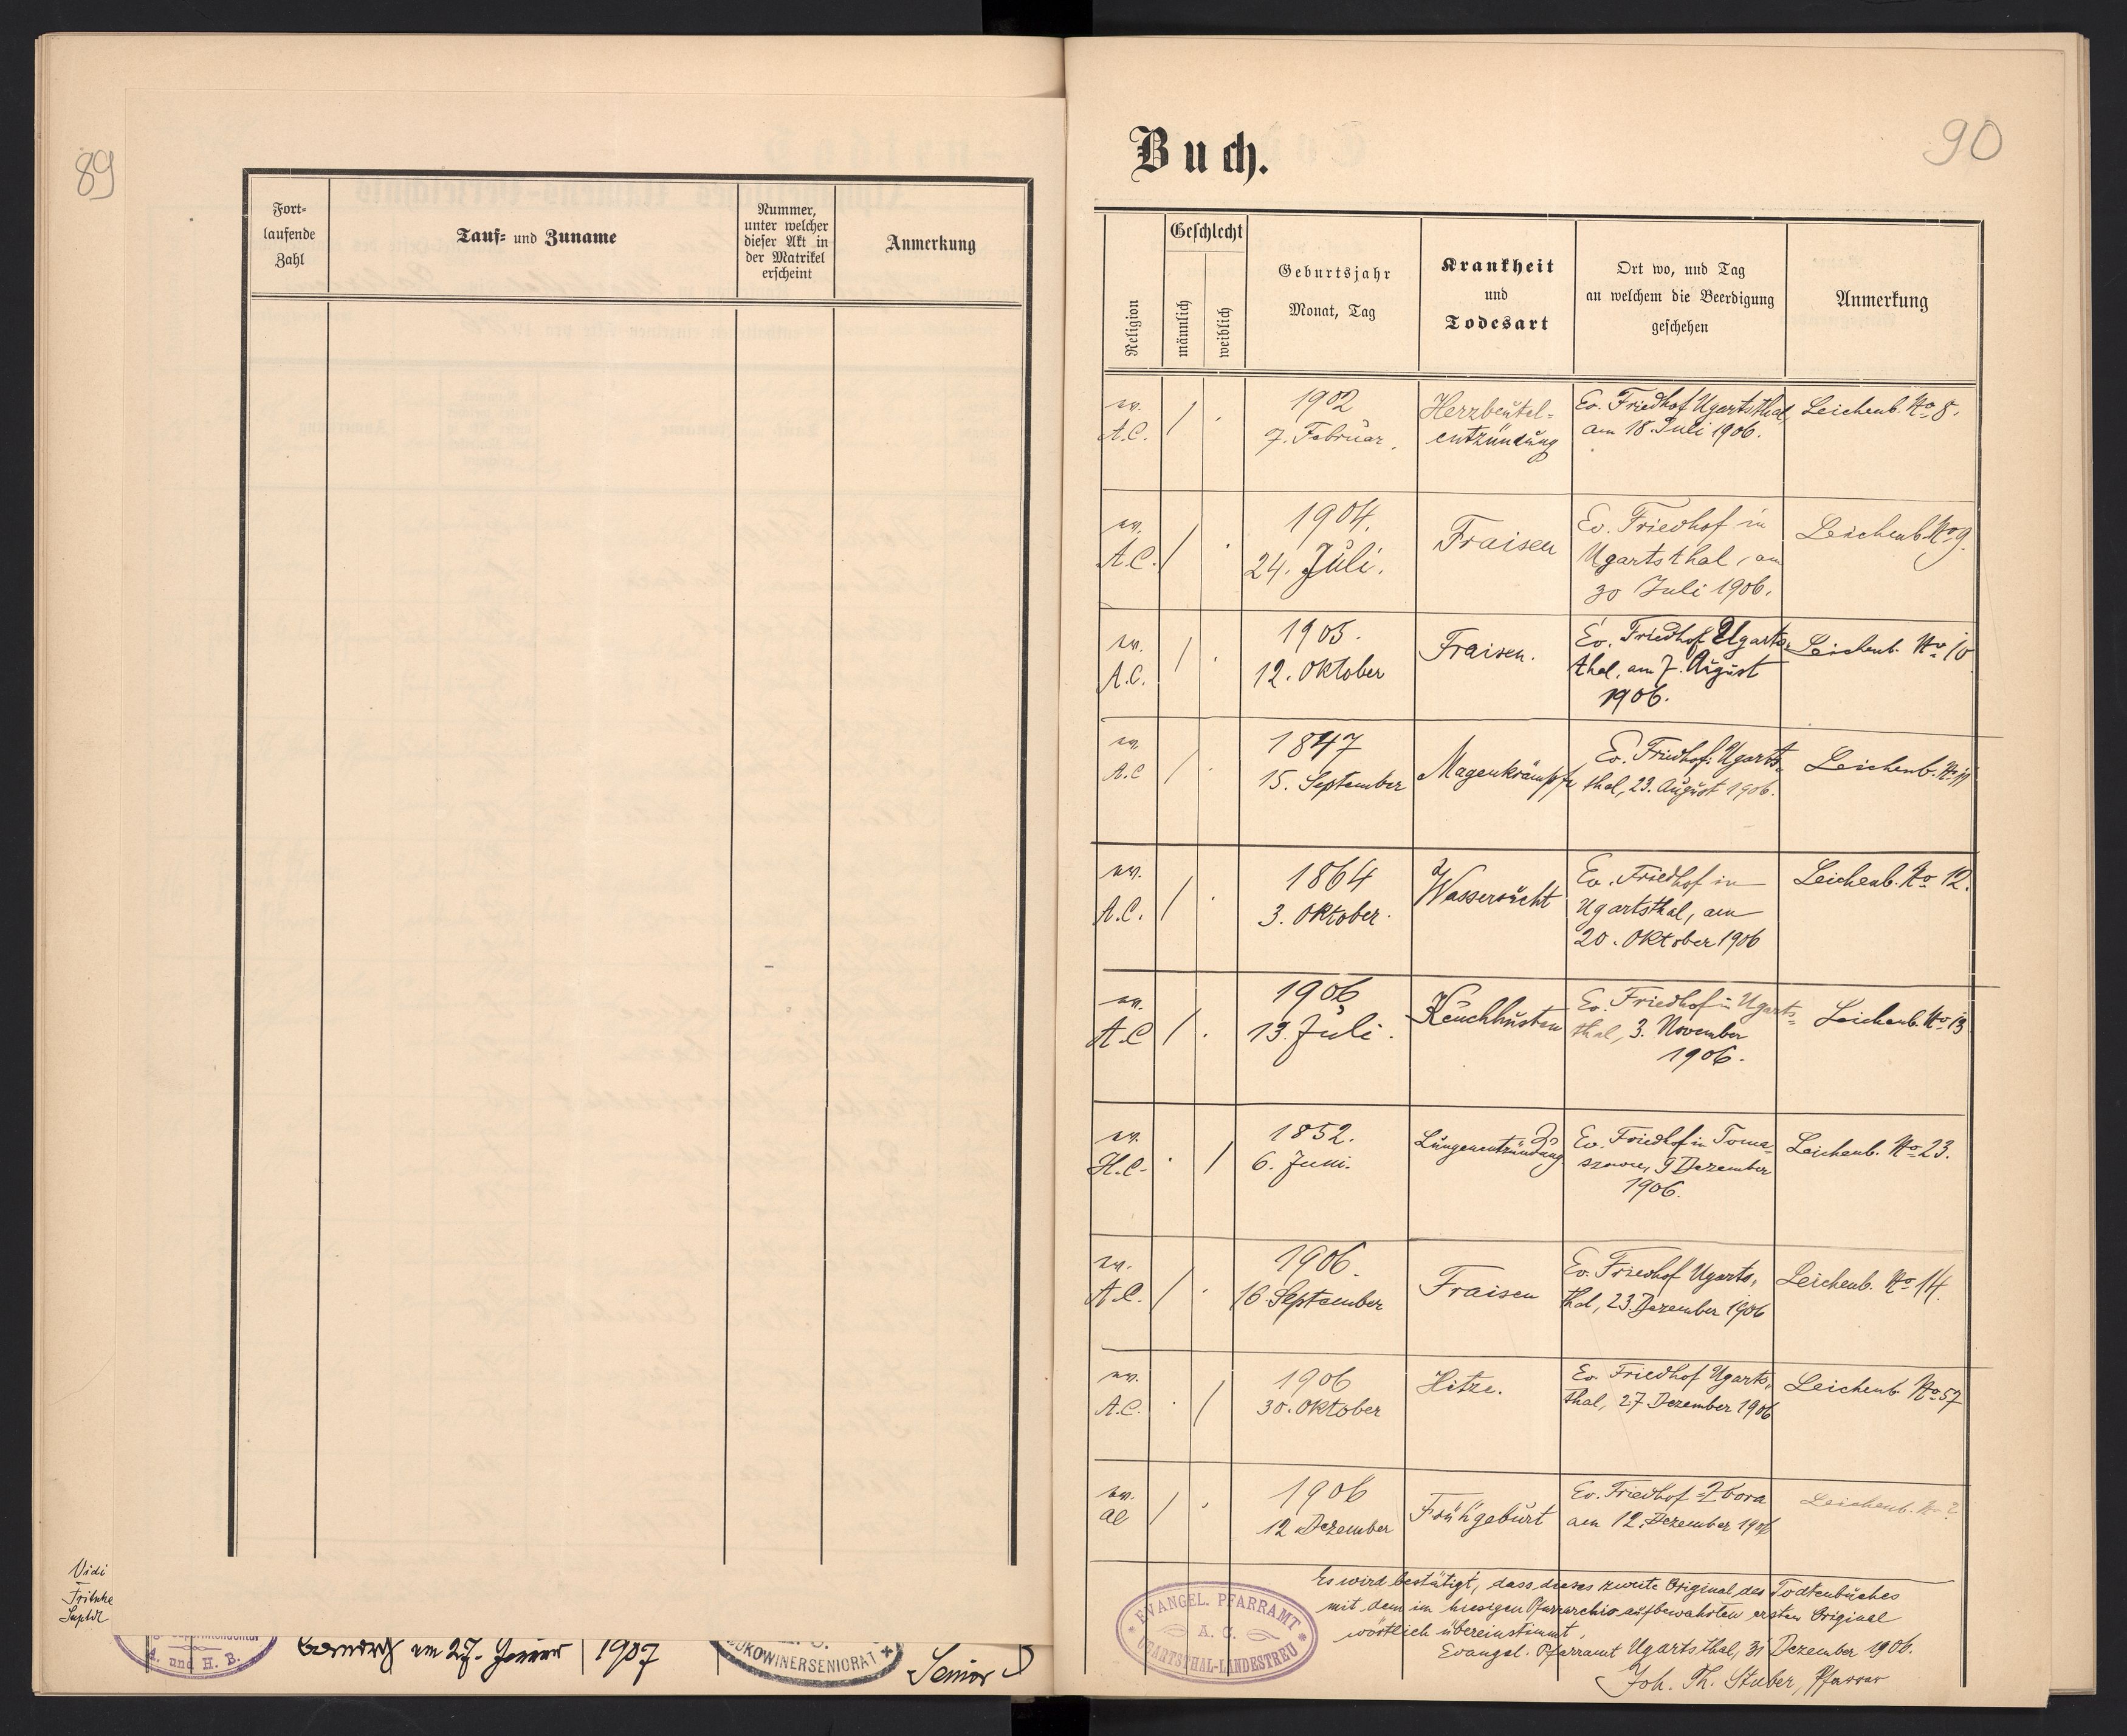 89
Fort-
laufende
Zahl
Tauf- und Zuname
Nummer,
unter welcher
dieser Akt in
der Matrikel
erscheint
Anmerkung
Vidi
Supdt
A. und H. B.
am 27. Jänner 1907
BUKOWINERSENIORAT
Senior
Buch.
90
Religion
Geschlecht
männlich
weiblich
Geburtsjahr
Monat, Tag
Krankheit
und
Todesart
Ort wo, und Tag
an welchem die Beerdigung
geschehen
Anmerkung
ev.
A.C.
1902
7. Februar.
Herzbeutel-
entzündung
Ev. Friedhof Ugartsthal,
am 18. Juli 1906.
Leichenb. No 8.
ev.
A.C.
1904.
24. Juli.
Fraisen
Ev. Friedhof in
Ugartsthal, am
30 Juli 1906.
Leichenb. No 9.
ev.
A.C.
1905.
12. Oktober
Fraisen.
Ev. Friedhof Ugarts-
thal, am 7. August
1906.
Leichenb. No 10
ev.
A.C
1847
15. September
Magenkrämpfe
Ev. Friedhof: Ugarts-
thal, 23. August 1906.
Leichenb. No 11
ev.
A.C.
1864
3. Oktober.
Wassersucht
Ev. Friedhof in
Ugartsthal, am
20. Oktober 1906
Leichenb. No 12.
ev.
A.C
1906
13. Juli.
Keuchhusten
Ev. Friedhof in Ugarts-
thal, 3. November
1906.
Leichenb. No 13
ev.
H.C.
1852.
6. Juni.
Lungenentzündung
Ev. Friedhof in Toma-
szowce, 9 Dezember
1906.
Leichenb. No 23.
ev.
A.C.
1906.
16. September
Fraisen
Ev. Friedhof Ugarts-
thal, 23. Dezember 1906
Leichenb. No 14.
ev.
A.C.
1906
30. Oktober
Hitze.
Ev. Friedhof Ugarts-
thal, 27 Dezember 1906
Leichenb. No 57
ev.
AC
1906
12 Dezember
Frühgeburt
Ev. Friedhof Zbora
am 12. Dezember 1906
Leichenb. No 2
Es wird bestätigt, dass dieses zweite Original des Todtenbuches
mit dem im hiesigen Pfarrarchiv aufbewahrten ersten Original
wörtlich übereinstimmt.
Evangel. Pfarramt Ugartsthal, 31 Dezember 1906.
Joh. Th. Stuber, Pfarrer
EVANGEL. PFARRAMT
A. C.
UGARTSTHAL-LANDESTREU